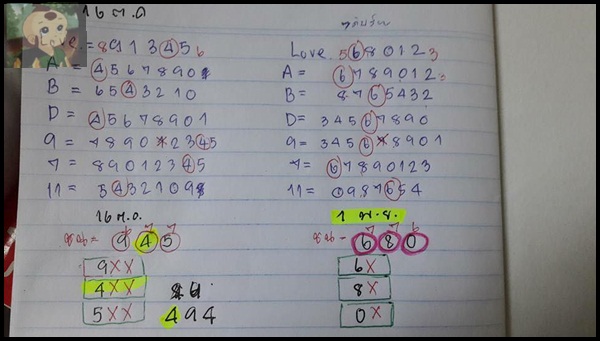 16 ต.ค
Love. = 8913456
A = 45678901
B = 6543210
D = 45678901
9 = 7890x2345
7 = 89012345
11 = 54321098
16 ต.ค.
945
9XX
4XX
5XX
494
Love 5680123
A = 67890120
B = 8765432
D = 34567890
9 = 3456x8901
7 = 67890123
11 = 0987654
1 พ.ย.
680
6X
8X
0X